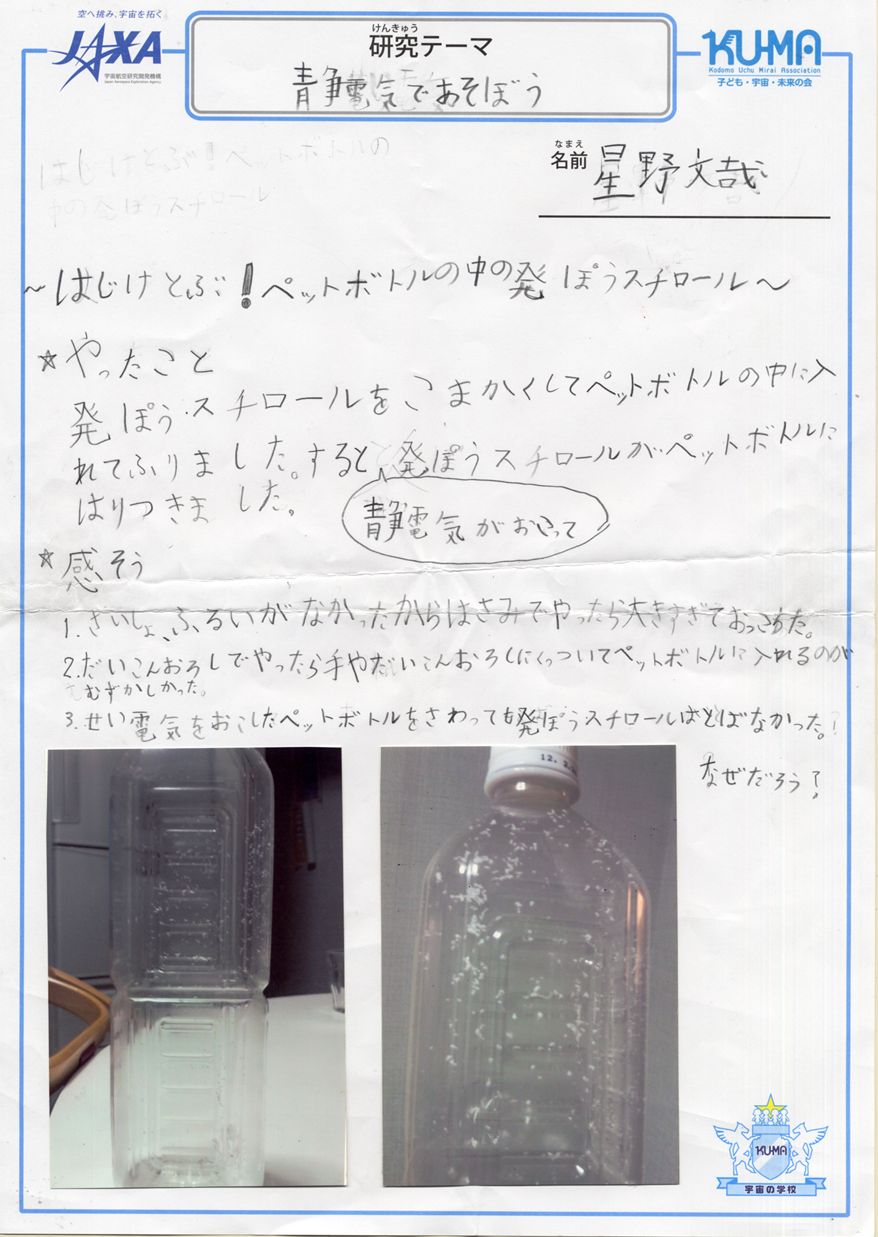 空へ挑み、宇宙を拓く
JAXA
宇宙航空研究開発機構
Japan Aerospace Exploration Agency
けんきゅう
研究テーマ
静電気であそぼう
KU-MA
Kodomo Uchu Mirai Association
子ども・宇宙・未来の会
はじけとぶ!ペットボトルの
中の発ぽうスチロール
なまえ
名前 星野文哉
~はじけとぶ!ペットボトルの中の発ぽうスチロール~
☆やったこと
発ぽうスチロールをこまかくしてペットボトルの中に入
れてふりました。すると、発ぽうスチロールがペットボトルに
はりつきました。
静電気がおこって
☆感そう
1.さいしょ、ふるいがなかったからはさみでやったら大きすぎておっこちた。
2.だいこんおろしでやったら手やだいこんおろしにくっついてペットボトルに入れるのが
むずかしかった。
3.せい電気をおこしたペットボトルをさわっても発ぽうスチロールはとばなかった。
なぜだろう?
KU-MA
宇宙の学校